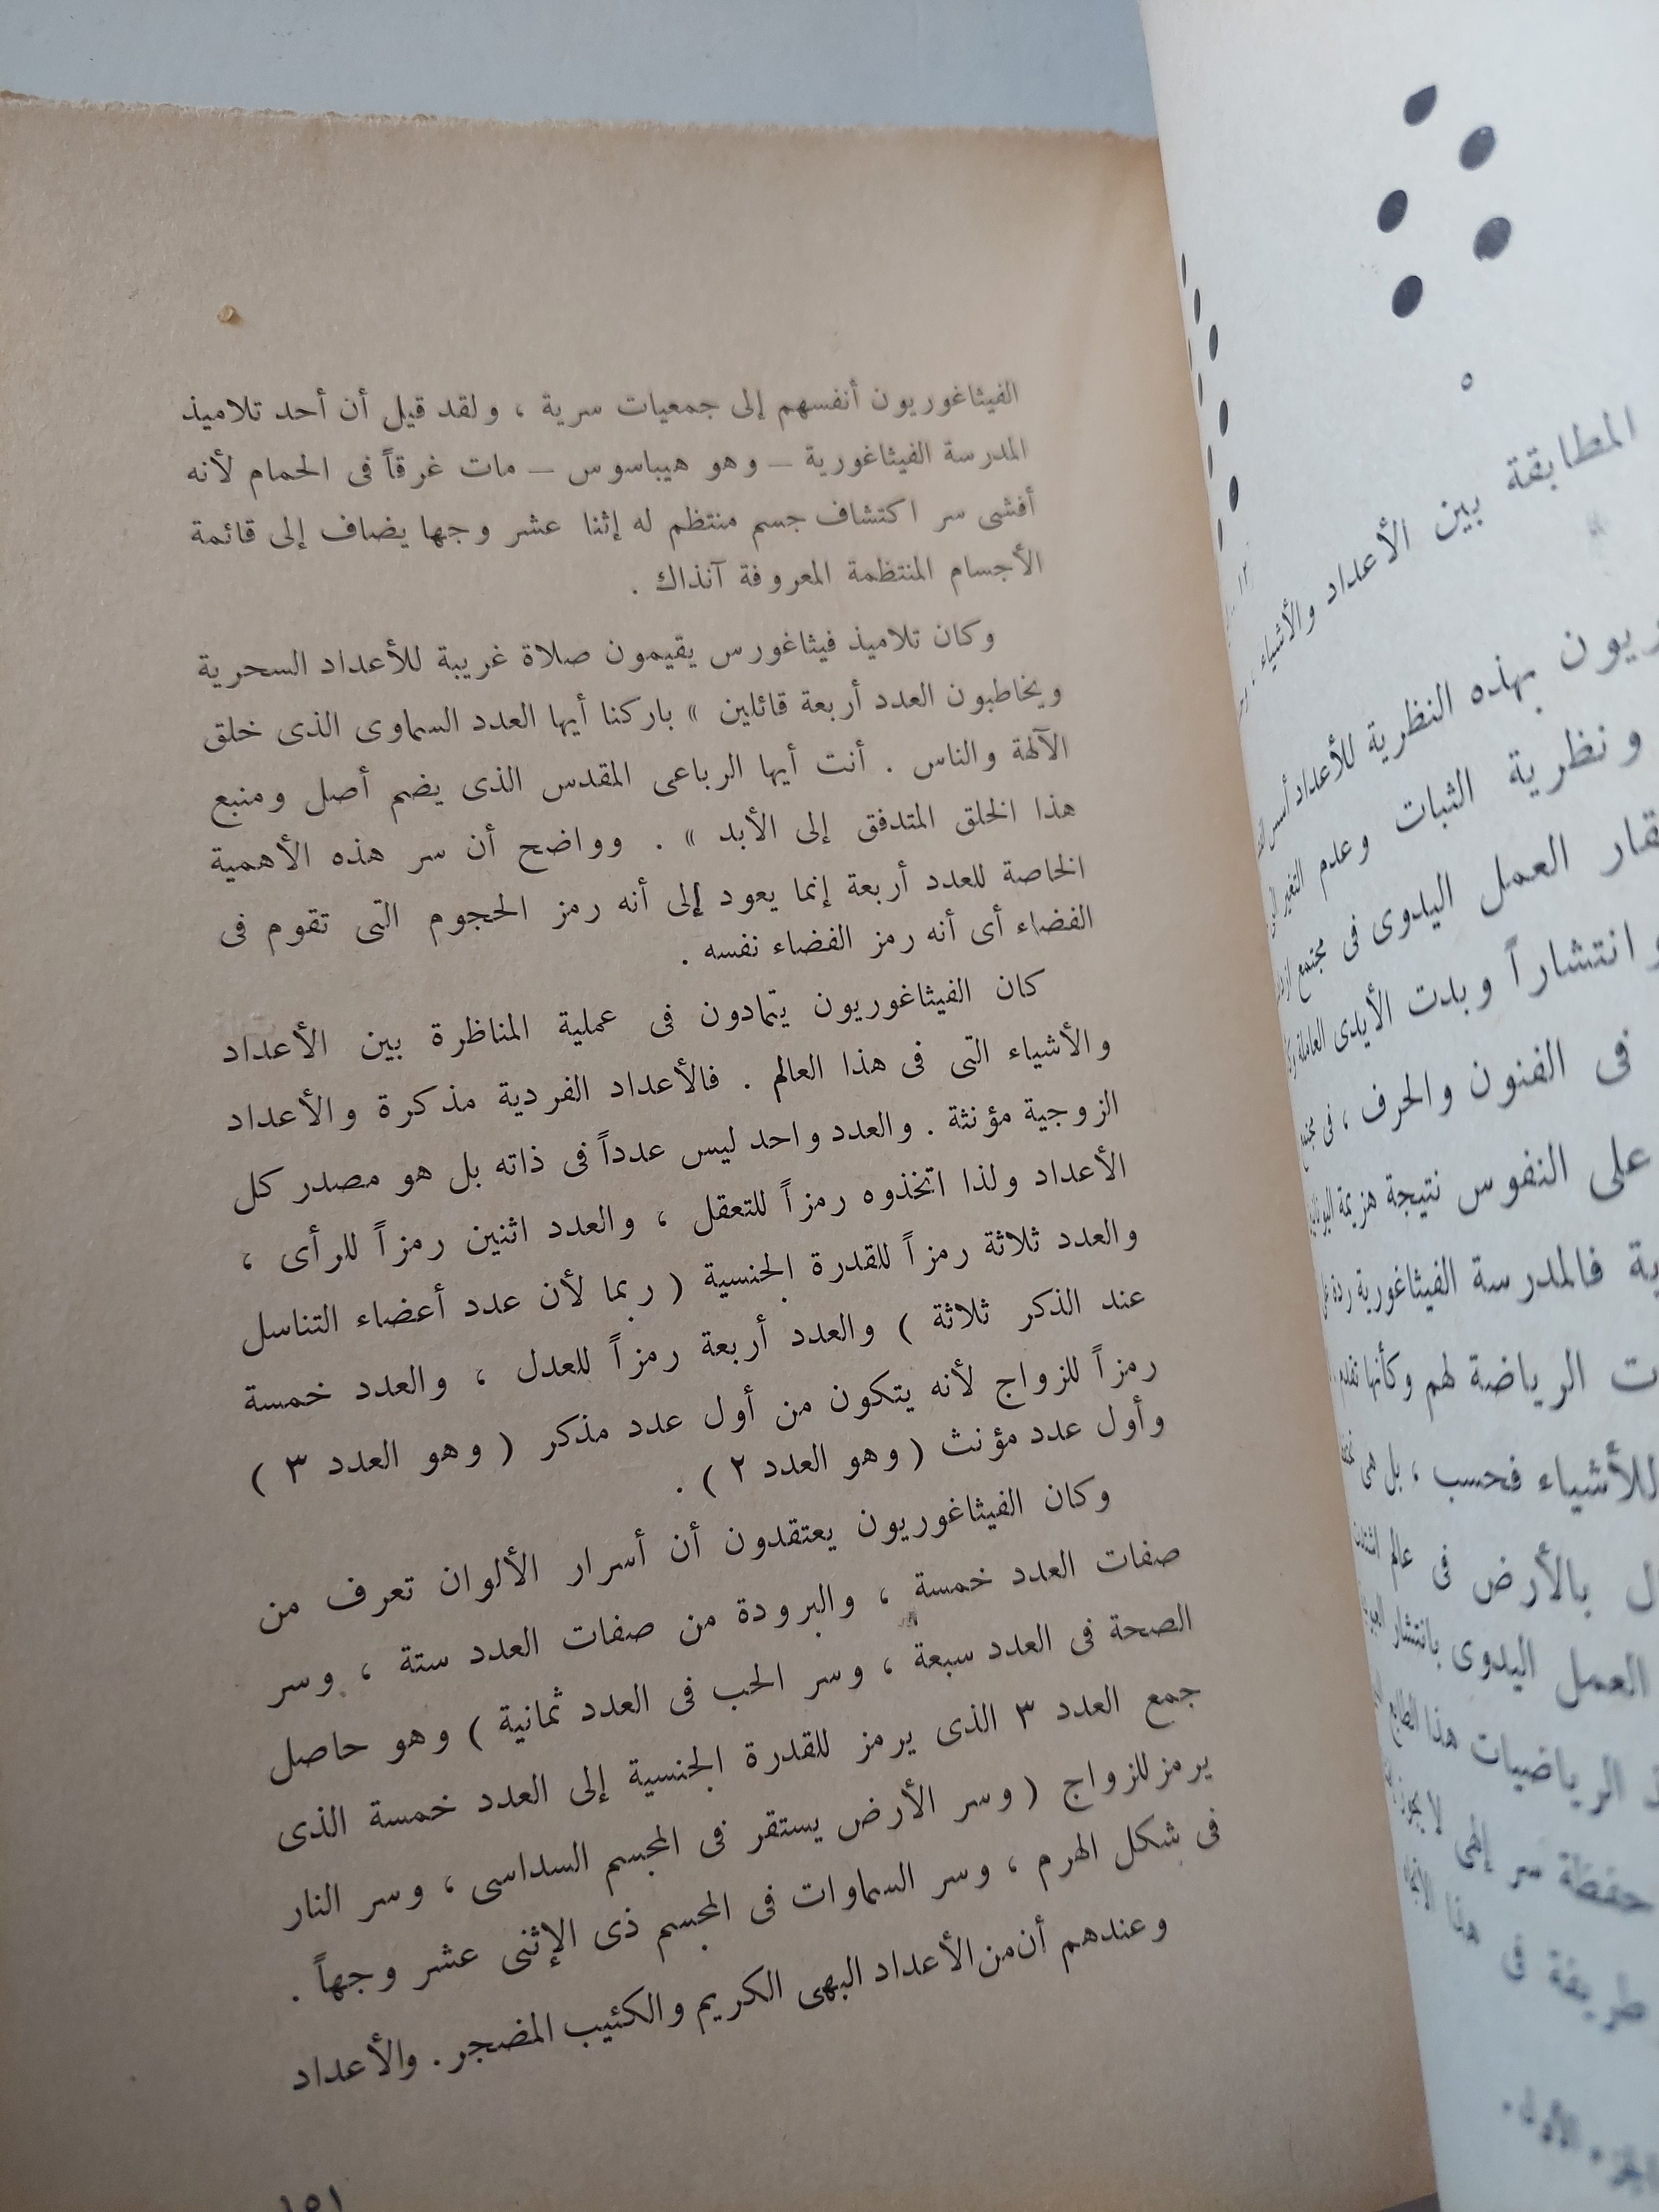 الفيثاغوريون أنفسهم إلى جمعيات سرية ، ولقد قيل أن أحد تلاميذ
المدرسة الفيثاغورية – وهو هيباسوس – مات غرقاً فى الحمام لأنه
أفشى سر اكتشاف جسم منتظم له إثنا عشر وجها يضاف إلى قائمة
الأجسام المنتظمة المعروفة آنذاك .
وكان تلاميذ فيثاغورس يقيمون صلاة غريبة للأعداد السحرية
ويخاطبون العدد أربعة قائلين » باركنا أيها العدد السماوى الذى خلق
الآلهة والناس . أنت أيها الرباعى المقدس الذى يضم أصل ومنبع
هذا الخلق المتدفق إلى الأبد » . وواضح أن سر هذه الأهمية
الخاصة للعدد أربعة إنما يعود إلى أنه رمز الحجوم التى تقوم فى
الفضاء أى أنه رمز الفضاء نفسه .
كان الفيثاغوريون يتمادون فى عملية المناظرة بين الأعداد
والأشياء التى فى هذا العالم . فالأعداد الفردية مذكرة والأعداد
الزوجية مؤنثة . والعدد واحد ليس عدداً فى ذاته بل هو مصدر كل
الأعداد ولذا اتخذوه رمزاً للتعقل ، والعدد اثنين رمزاً للرأى ،
والعدد ثلاثة رمزاً للقدرة الجنسية ( ربما لأن عدد أعضاء التناسل
عند الذكر ثلاثة ) والعدد أربعة رمزاً للعدل ، والعدد خمسة
رمزاً للزواج لأنه يتكون من أول عدد مذكر ( وهو العدد ٣ )
وأول عدد مؤنث ( وهو العدد ٢ ) .
وكان الفيثاغوريون يعتقدون أن أسرار الألوان تعرف من
صفات العدد خمسة ، والبرودة من صفات العدد ستة ، وسر
الصحة فى العدد سبعة ، وسر الحب فى العدد ثمانية ) وهو حاصل
جمع العدد ٣ الذى يرمز للقدرة الجنسية إلى العدد خمسة الذى
يرمز للزواج ( وسر الأرض يستقر فى المجسم السداسى ، وسر النار
فى شكل الهرم ، وسر السماوات فى المجسم ذى الإثنى عشر وجهاً .
وعندهم أن من الأعداد البهى الكريم والكئيب المضجر . والأعداد
١٥١
٥
المطابقة بين الأعداد والأشياء
بهذه النظرية للأعداد أسس
ونظرية الثبات وعدم التغير
العمل اليدوى فى مجتمع
وانتشاراً وبدت الأيدى العاملة
فى الفنون والحرف ، فى
على النفوس نتيجة هزيمة
فالمدرسة الفيثاغورية ردة
الرياضة لهم وكأنها
للأشياء فحسب ، بل هى
بالأرض فى عالم
العمل اليدوى بانتشار
الرياضيات هذا الطابع
حفظة سر إلهى لا
طريفة فى هذا